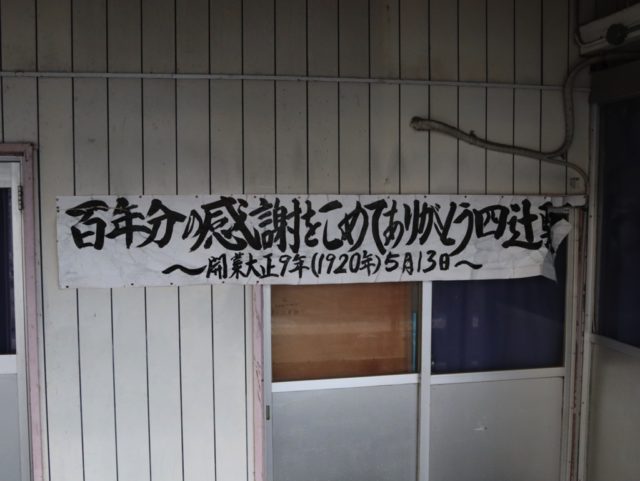 百年分の感謝をこめてありがとう四辻駅
～開業大正9年(1920年)5月13日～